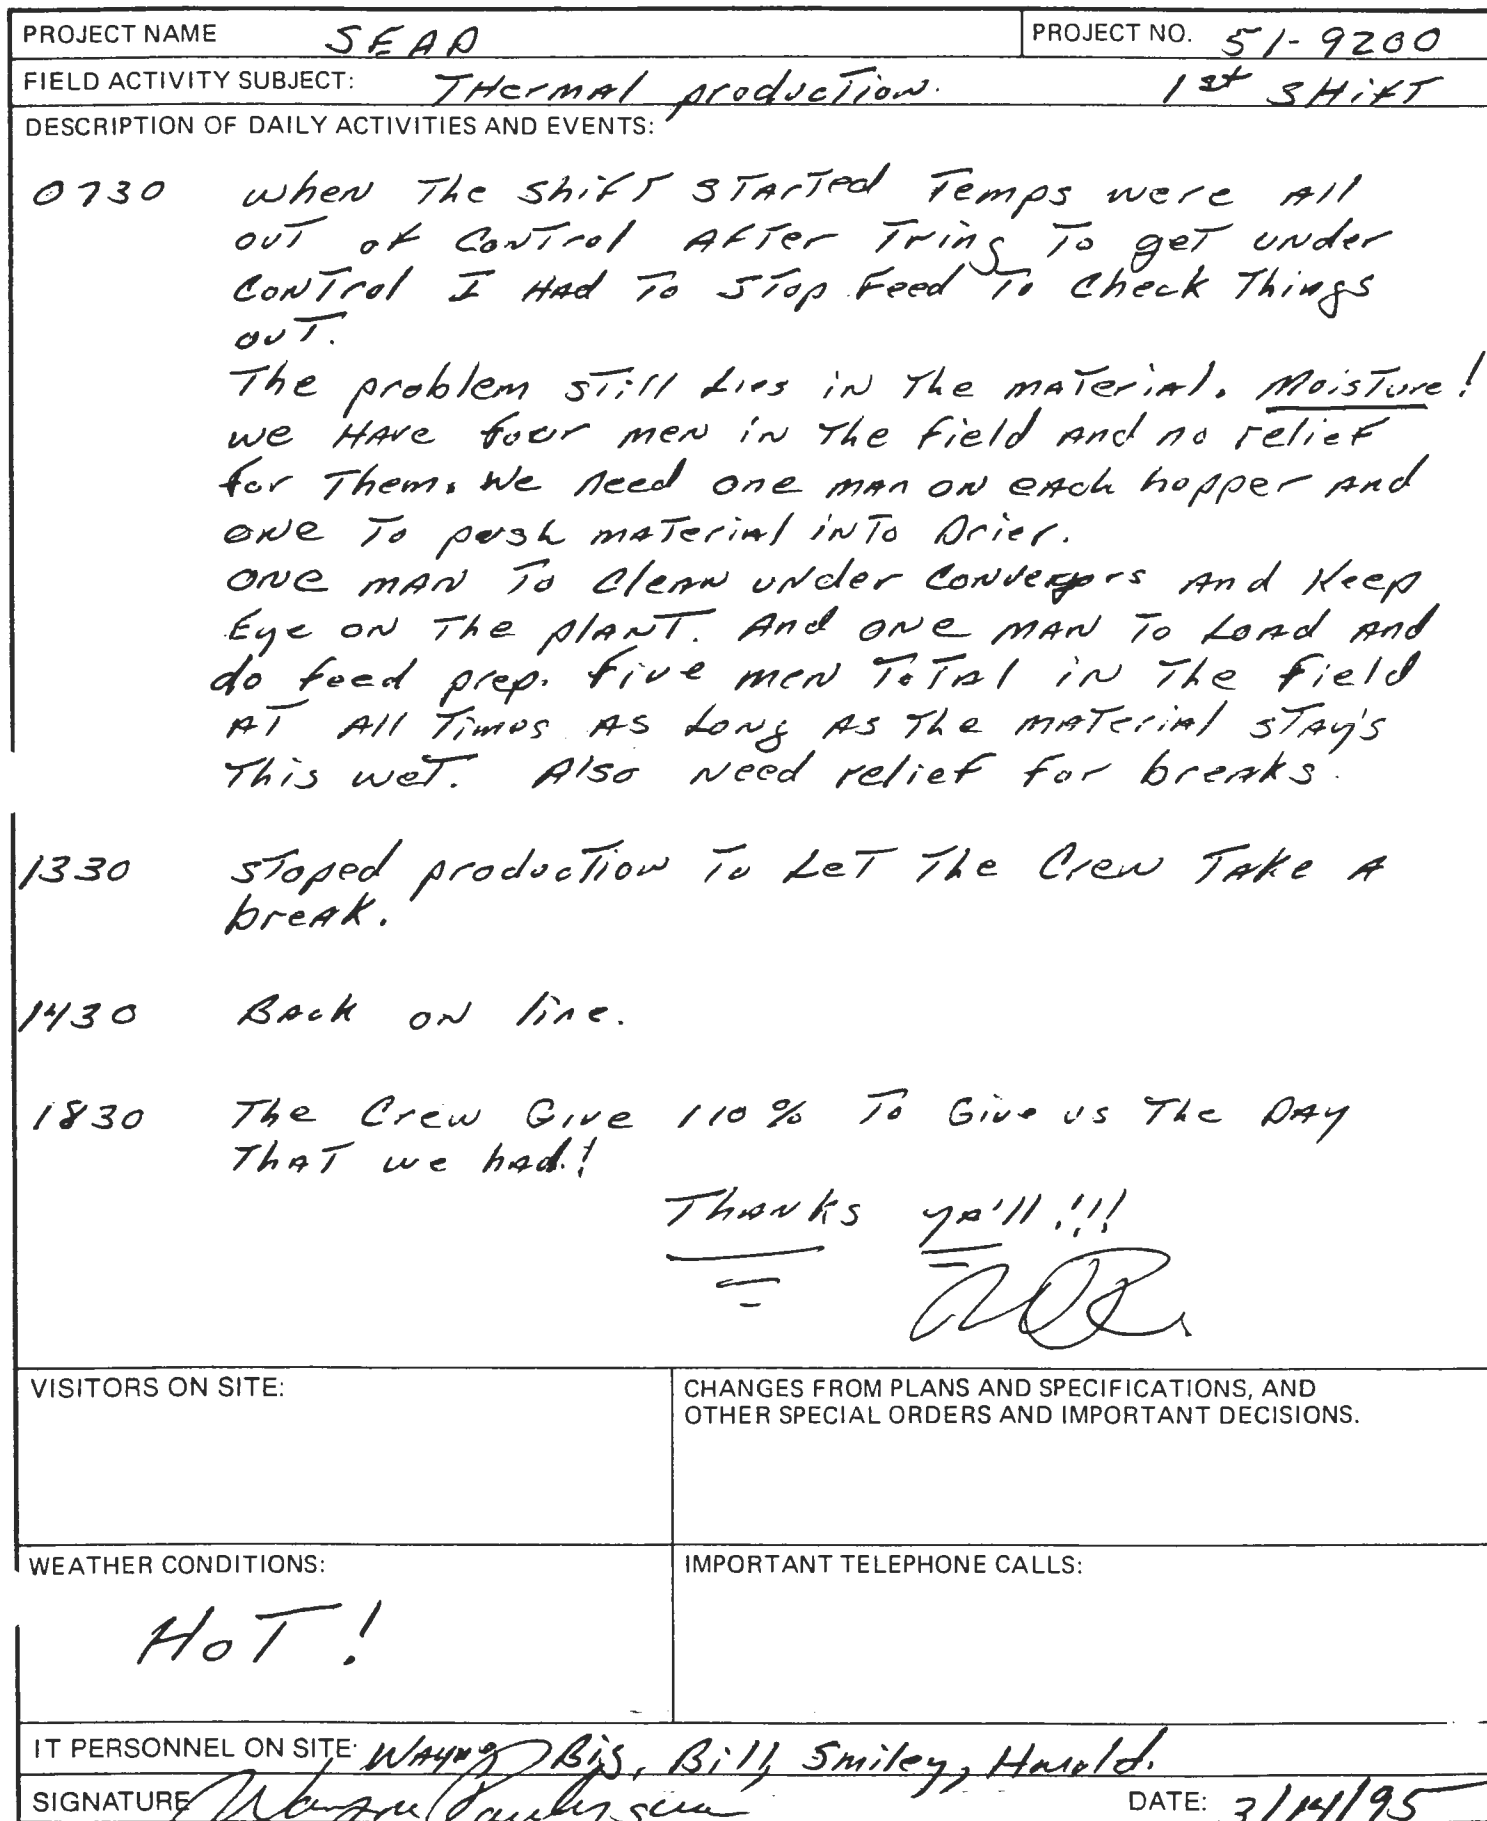 PROJECT NAME SEAD PROJECT NO. 51-9200
FIELD ACTIVITY SUBJECT: THermal production. 1st SHiFT
DESCRIPTION OF DAILY ACTIVITIES AND EVENTS:
0730 when The shift STarTed Temps were All
ouT of ConTrol AfTer Tring To geT under
ConTrol I HAd To STop Feed To Check Things
ouT.
The problem sTill Lies in The maTerial. MoisTure!
we HAve four men in The field And no relief
for Them. We need one man on each hopper And
one To push maTerial inTo Drier.
one man To Clean under Conveyors And Keep
Eye on The planT. And one man To Load And
do feed prep. five men ToTal in The field
AT All Times As Long As The maTerial sTay's
This weT. Also need relief for breaks.
1330 sToped producTion To LeT The Crew TAke A
breAk.
1430 BAck on line.
1830 The Crew Give 110% To Give us The DAy
ThAT we had!
Thanks ya'll!!!
VISITORS ON SITE:
CHANGES FROM PLANS AND SPECIFICATIONS, AND
OTHER SPECIAL ORDERS AND IMPORTANT DECISIONS.
WEATHER CONDITIONS:
HoT!
IMPORTANT TELEPHONE CALLS:
IT PERSONNEL ON SITE: Wayne, Big, Bill, Smiley, Harold.
SIGNATURE Wayne DATE: 3/14/95